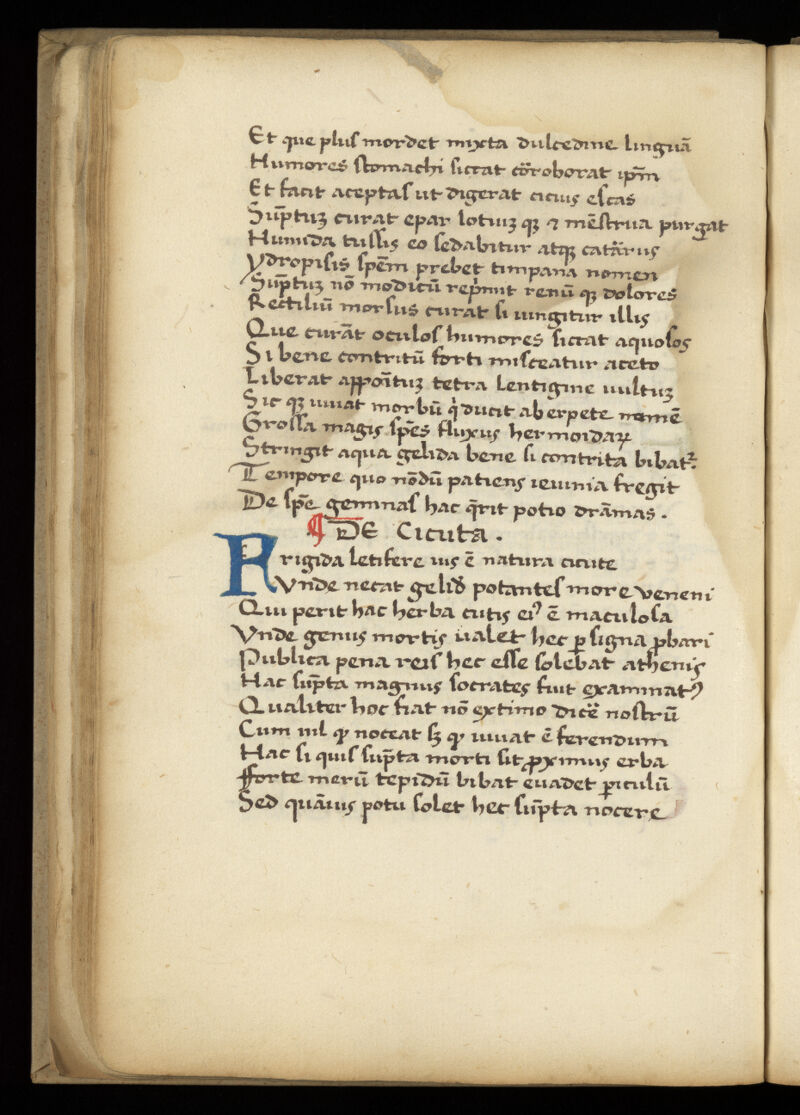 Et que pluſ mordet mixta dulcedine linguā
Humores ſtomachi ſiccat cōroborat ipm̄
Et facit aceptaſ ut digerat cicius eſcas
Sūptuꝫ curat epar lotiuꝫ qꝫ ⁊ mēſtrua purgat
Humida tuſſis eo ſedabitur atqꝫ catarrus
Ydropiſis ſpēm prebet timpana nomen
Sūptuꝫ nō modicū rep̄mit renū qꝫ dolores
Rectiliū morſus curat ſi iungitur illis
Que curāt oculoſ humores ſiccat aquoſos
Si bene contritū forti miſceatur aceto
Liberat appoītuꝫ tetra lentigine uultuꝫ
Sic qꝫ iuuat morbū q̇ ducit ab erpete nomē
Groſſa magis ſpēs fluxus hermoidaꝝ
Stringit aqua gelida bene ſi contrita bibat᷑
Tempore quo nōdū patiens ieiunia fregit
De ſpē geminaſ hac q̄rit potio drāmas .
¶ DE Cicuta .
Frigida letifere uis ē natura cicute
Vnde necat gelid᷒ potanteſ more veneni
Qui perit hac herba cutis ei᷒ ē maculoſa
Vnde genus mortis ualet hec ꝑ ſigna ꝓbari
Publica pena reiſ hec eſſe ſolebat athenis
Hac ſūpta magnus ſocrates fuit examinat᷒
Qualiter hoc fiat nō extimo dicē noſtrū
Cum nil qͥ noceat ſꝫ qͥ iuuat ē ferendum
Hac ſi quiſ ſūpta morti ſit ꝓximus erba
fforte merū tepidū bibat euadet ꝑiculū
Sed quāuis potu ſolet hec ſūpta nocere